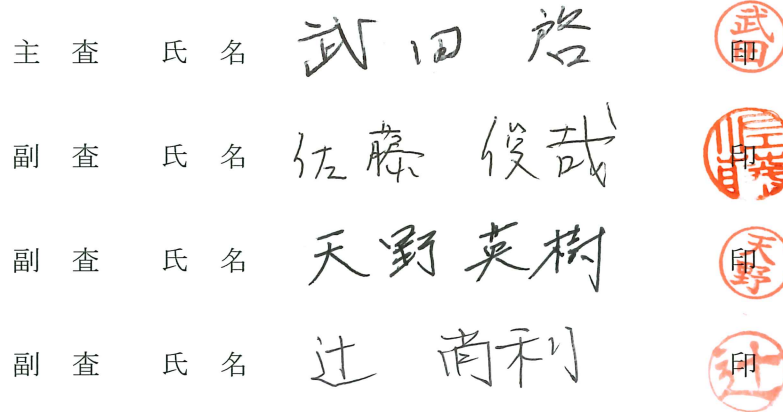 主査 氏名 武田 啓 印
副査 氏名 佐藤 俊哉 印
副査 氏名 天野英樹 印
副査 氏名 辻 尚利 印